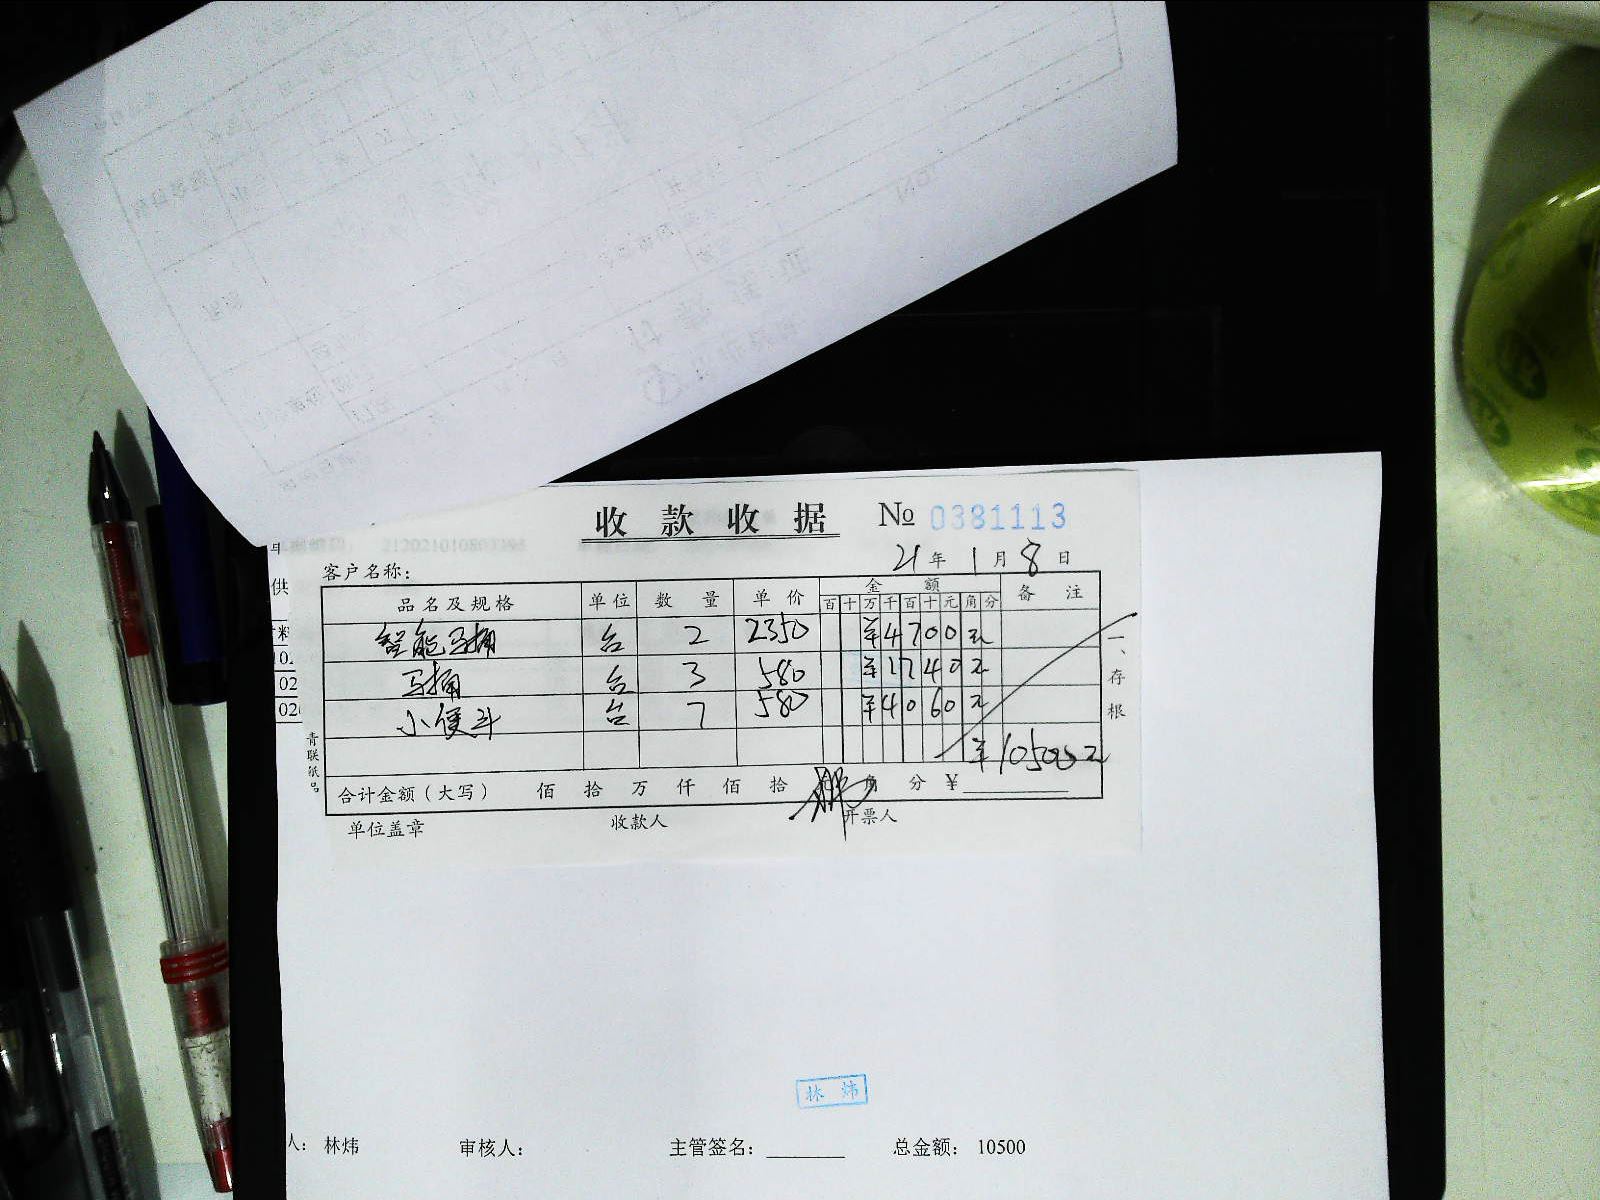 收款收据 № 0381113
21年1月8日
客户名称：
品名及规格 单位 数量 单价 金额 备注
百 十 万 千 百 十 元 角 分
智能马桶 台 2 2350 ¥4700元
马桶 台 3 580 ¥1740元
小便斗 台 7 580 ¥4060元
¥10500元
合计金额（大写） 佰 拾 万 仟 佰 拾 角 分 ¥
单位盖章 收款人 开票人
一、存根
青联纸品
林炜
人： 林炜 审核人： 主管签名：________ 总金额： 10500